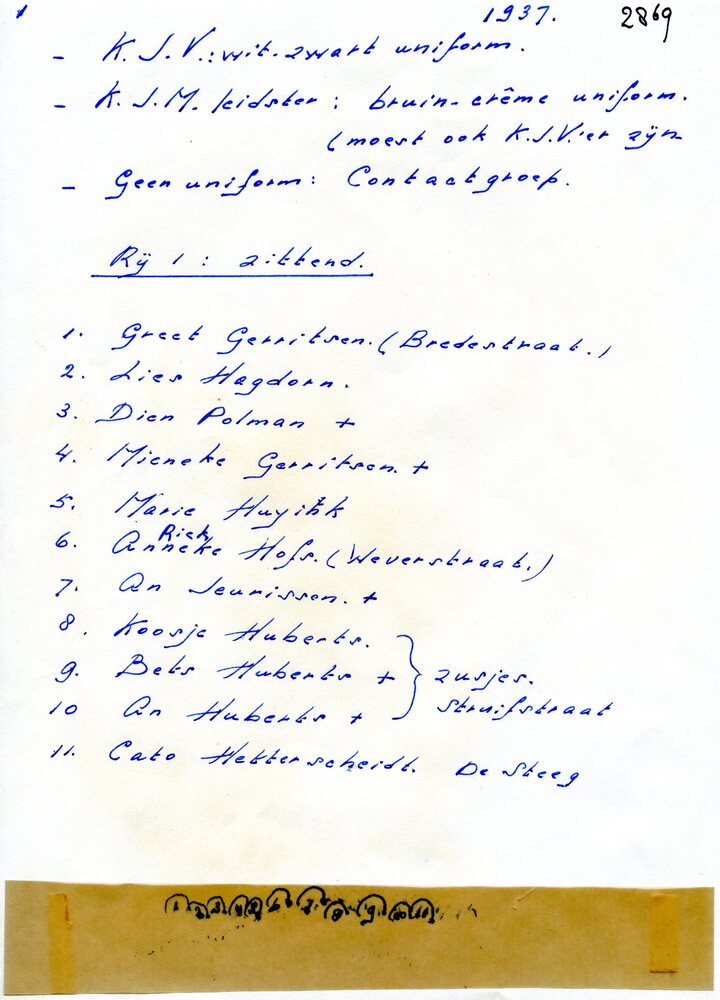 1 1937. 2869
- K.J.V.: wit-zwart uniform.
- K.J.M. leidster: bruin-crême uniform.
(moest ook K.J.V.'er zijn
- Geen uniform: Contactgroep.
Rij 1: zittend.
1. Greet Gerritsen. (Bredestraat.)
2. Lies Hagdorn.
3. Dien Polman +
4. Mieneke Gerritsen. +
5. Marie Huyink
Riek
6. Anneke Hofs. (Weverstraat.)
7. An Jeurissen. +
8. Koosje Huberts.
9. Bets Huberts + } zusjes.
10 An Huberts + Struifstraat
11. Cato Hetterscheidt. De Steeg
1 2 3 4 5 6 7 8 9 10 11